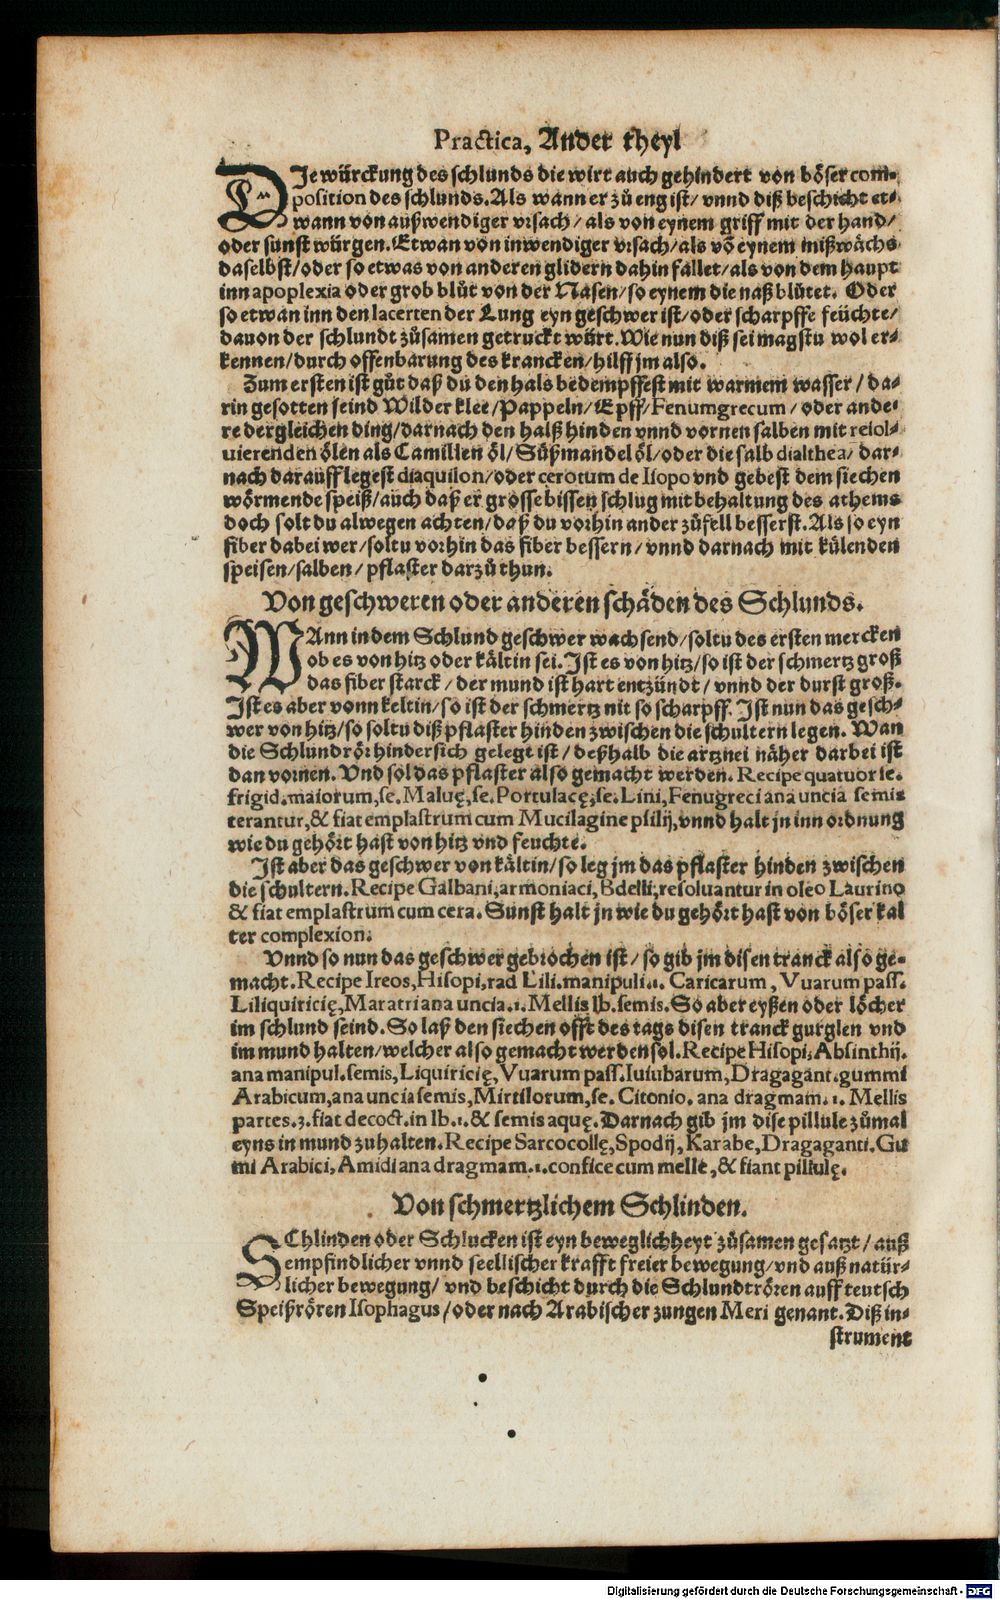 Practica, Ander theyl
DJe würckung des schlunds die wirt auch gehindert von böser com-
position des schlunds. Als wann er zů eng ist/ vnnd diß beschicht et-
wann von außwendiger vrsach/ als von eynem griff mit der hand/
oder sunst würgen. Etwan von inwendiger vrsach/ als võ eynem mißwächs
daselbst/ oder so etwas von anderen glidern dahin fallet/ als von dem haupt
inn apoplexia oder grob blůt von der Nasen/ so eynem die naß blůtet. Oder
so etwan inn den lacerten der Lung eyn geschwer ist/ oder scharpffe feüchte/
dauon der schlundt zůsamen getruckt würt. Wie nun diß sei magstu wol er-
kennen/ durch offenbarung des krancken/ hilff jm also.
Zum ersten ist gůt daß du den halß bedempffest mit warmem wasser/ da-
rin gesotten seind Wilder klee/ Pappeln/ Epff/ Fenumgrecum/ oder ande-
re dergleichen ding/ darnach den halß hinden vnnd vornen salben mit resol-
uierenden ölen als Camillen öl/ Süßmandel öl/ oder die salb dialthea/ dar-
nach darauff legest diaquilon/ oder cerotum de Isopo vnd gebest dem siechen
wörmende speiß/ auch daß er grosse bissen schlug mit behaltung des athems
doch solt du alwegen achten/ daß du vorhin ander zůfell besserst. Als so eyn
fiber dabei wer/ soltu vorhin das fiber bessern/ vnnd darnach mit külenden
speisen/ salben/ pflaster darzů thun.
Von geschweren oder anderen schäden des Schlunds.
WAnn in dem Schlund geschwer wachsend/ soltu des ersten mercken
ob es von hitz oder kältin sei. Ist es von hitz/ so ist der schmertz groß
das fiber starck/ der mund ist hart entzündt/ vnnd der durst groß.
Ist es aber vonn keltin/ so ist der schmertz nit so scharpff. Ist nun das gesch-
wer von hitz/ so soltu diß pflaster hinden zwischen die schultern legen. Wan
die Schlundrör hindersich gelegt ist/ deßhalb die artznei näher darbei ist
dan vornen. Vnd sol das pflaster also gemacht werden. Recipe quatuor se.
frigid. maiorum, se. Maluę, se. Portulacę, se. Lini, Fenugreci ana uncia semis
terantur, & fiat emplastrum cum Mucilagine psilij, vnnd halt jn inn ordnung
wie du gehört hast von hitz vnd feuchte.
Ist aber das geschwer von kältin/ so leg jm das pflaster hinden zwischen
die schultern. Recipe Galbani, armoniaci, Bdelli, resoluantur in oleo Laurino
& fiat emplastrum cum cera. Sunst halt jn wie du gehört hast von böser kal
ter complexion.
Vnnd so nun das geschwer gebrochen ist/ so gib jm disen tranck also ge-
macht. Recipe Ireos, Hisopi, rad Lili. manipuli. 1. Caricarum, Vuarum pass.
Liliquiricię, Maratri ana uncia. 1. Mellis lb. semis. So aber eyßen oder löcher
im schlund seind. So laß den siechen offt des tags disen tranck gurglen vnd
im mund halten/ welcher also gemacht werden sol. Recipe Hisopi, Absinthij.
ana manipul. semis, Liquiricię, Vuarum pass. Iuiubarum, Dragagant. gummi
Arabicum, ana uncia semis, Mirtilorum, se. Citonio. ana dragmam. 1. Mellis
partes. 3. fiat decoct. in lb. 1. & semis aquę. Darnach gib jm dise pillule zůmal
eyns in mund zuhalten. Recipe Sarcocollę, Spodij, Karabe, Dragaganti. Gu
mi Arabici, Amidi ana dragmam. 1. confice cum melle, & fiant pillulę.
Von schmertzlichem Schlinden.
SChlinden oder Schlucken ist eyn beweglichheyt zůsamen gesatzt/ auß
empfindlicher vnnd seellischer krafft freier bewegung/ vnd auß natür-
licher bewegung/ vnd beschicht durch die Schlundtrören auff teutsch
Speißrören Isophagus/ oder nach Arabischer zungen Meri genant. Diß in-
strument
Digitalisierung gefördert durch die Deutsche Forschungsgemeinschaft - DFG